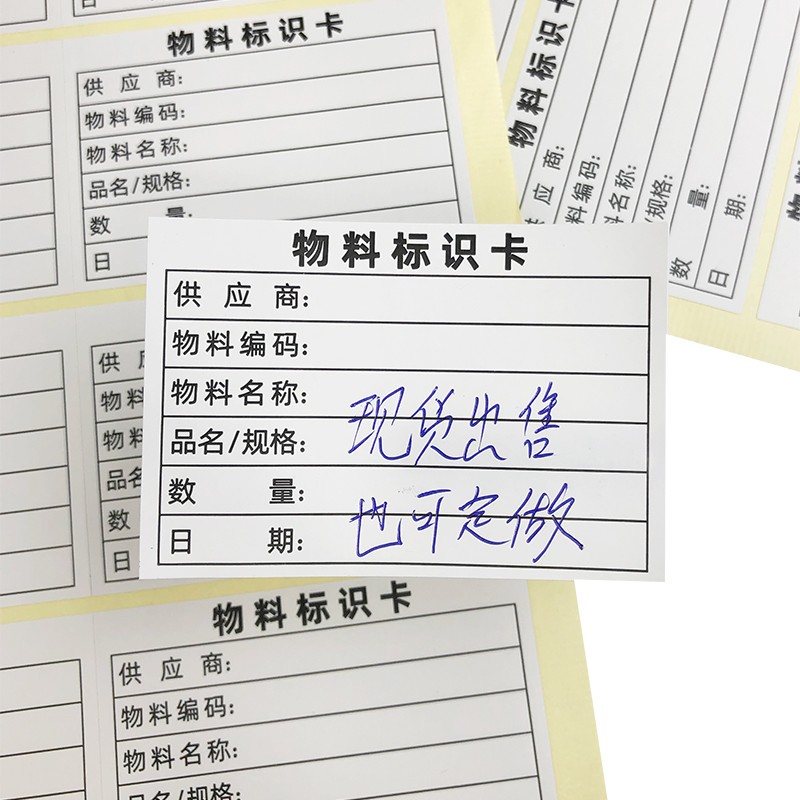 物料标识卡
供应商:
物料编码:
物料名称:
品名/规格:
数量:
日
物料标识卡
供应商:
物料编码:
物料名称:
品名/规格:
数量:
日期:
物料标识卡
供应商:
物料编码:
物料名称:
品名/规格:
数量:
日期:
现货出售
也可定做
供
物料
物料
品名
数
日
物料标识卡
供应商:
物料编码:
物料名称:
品名/规格: